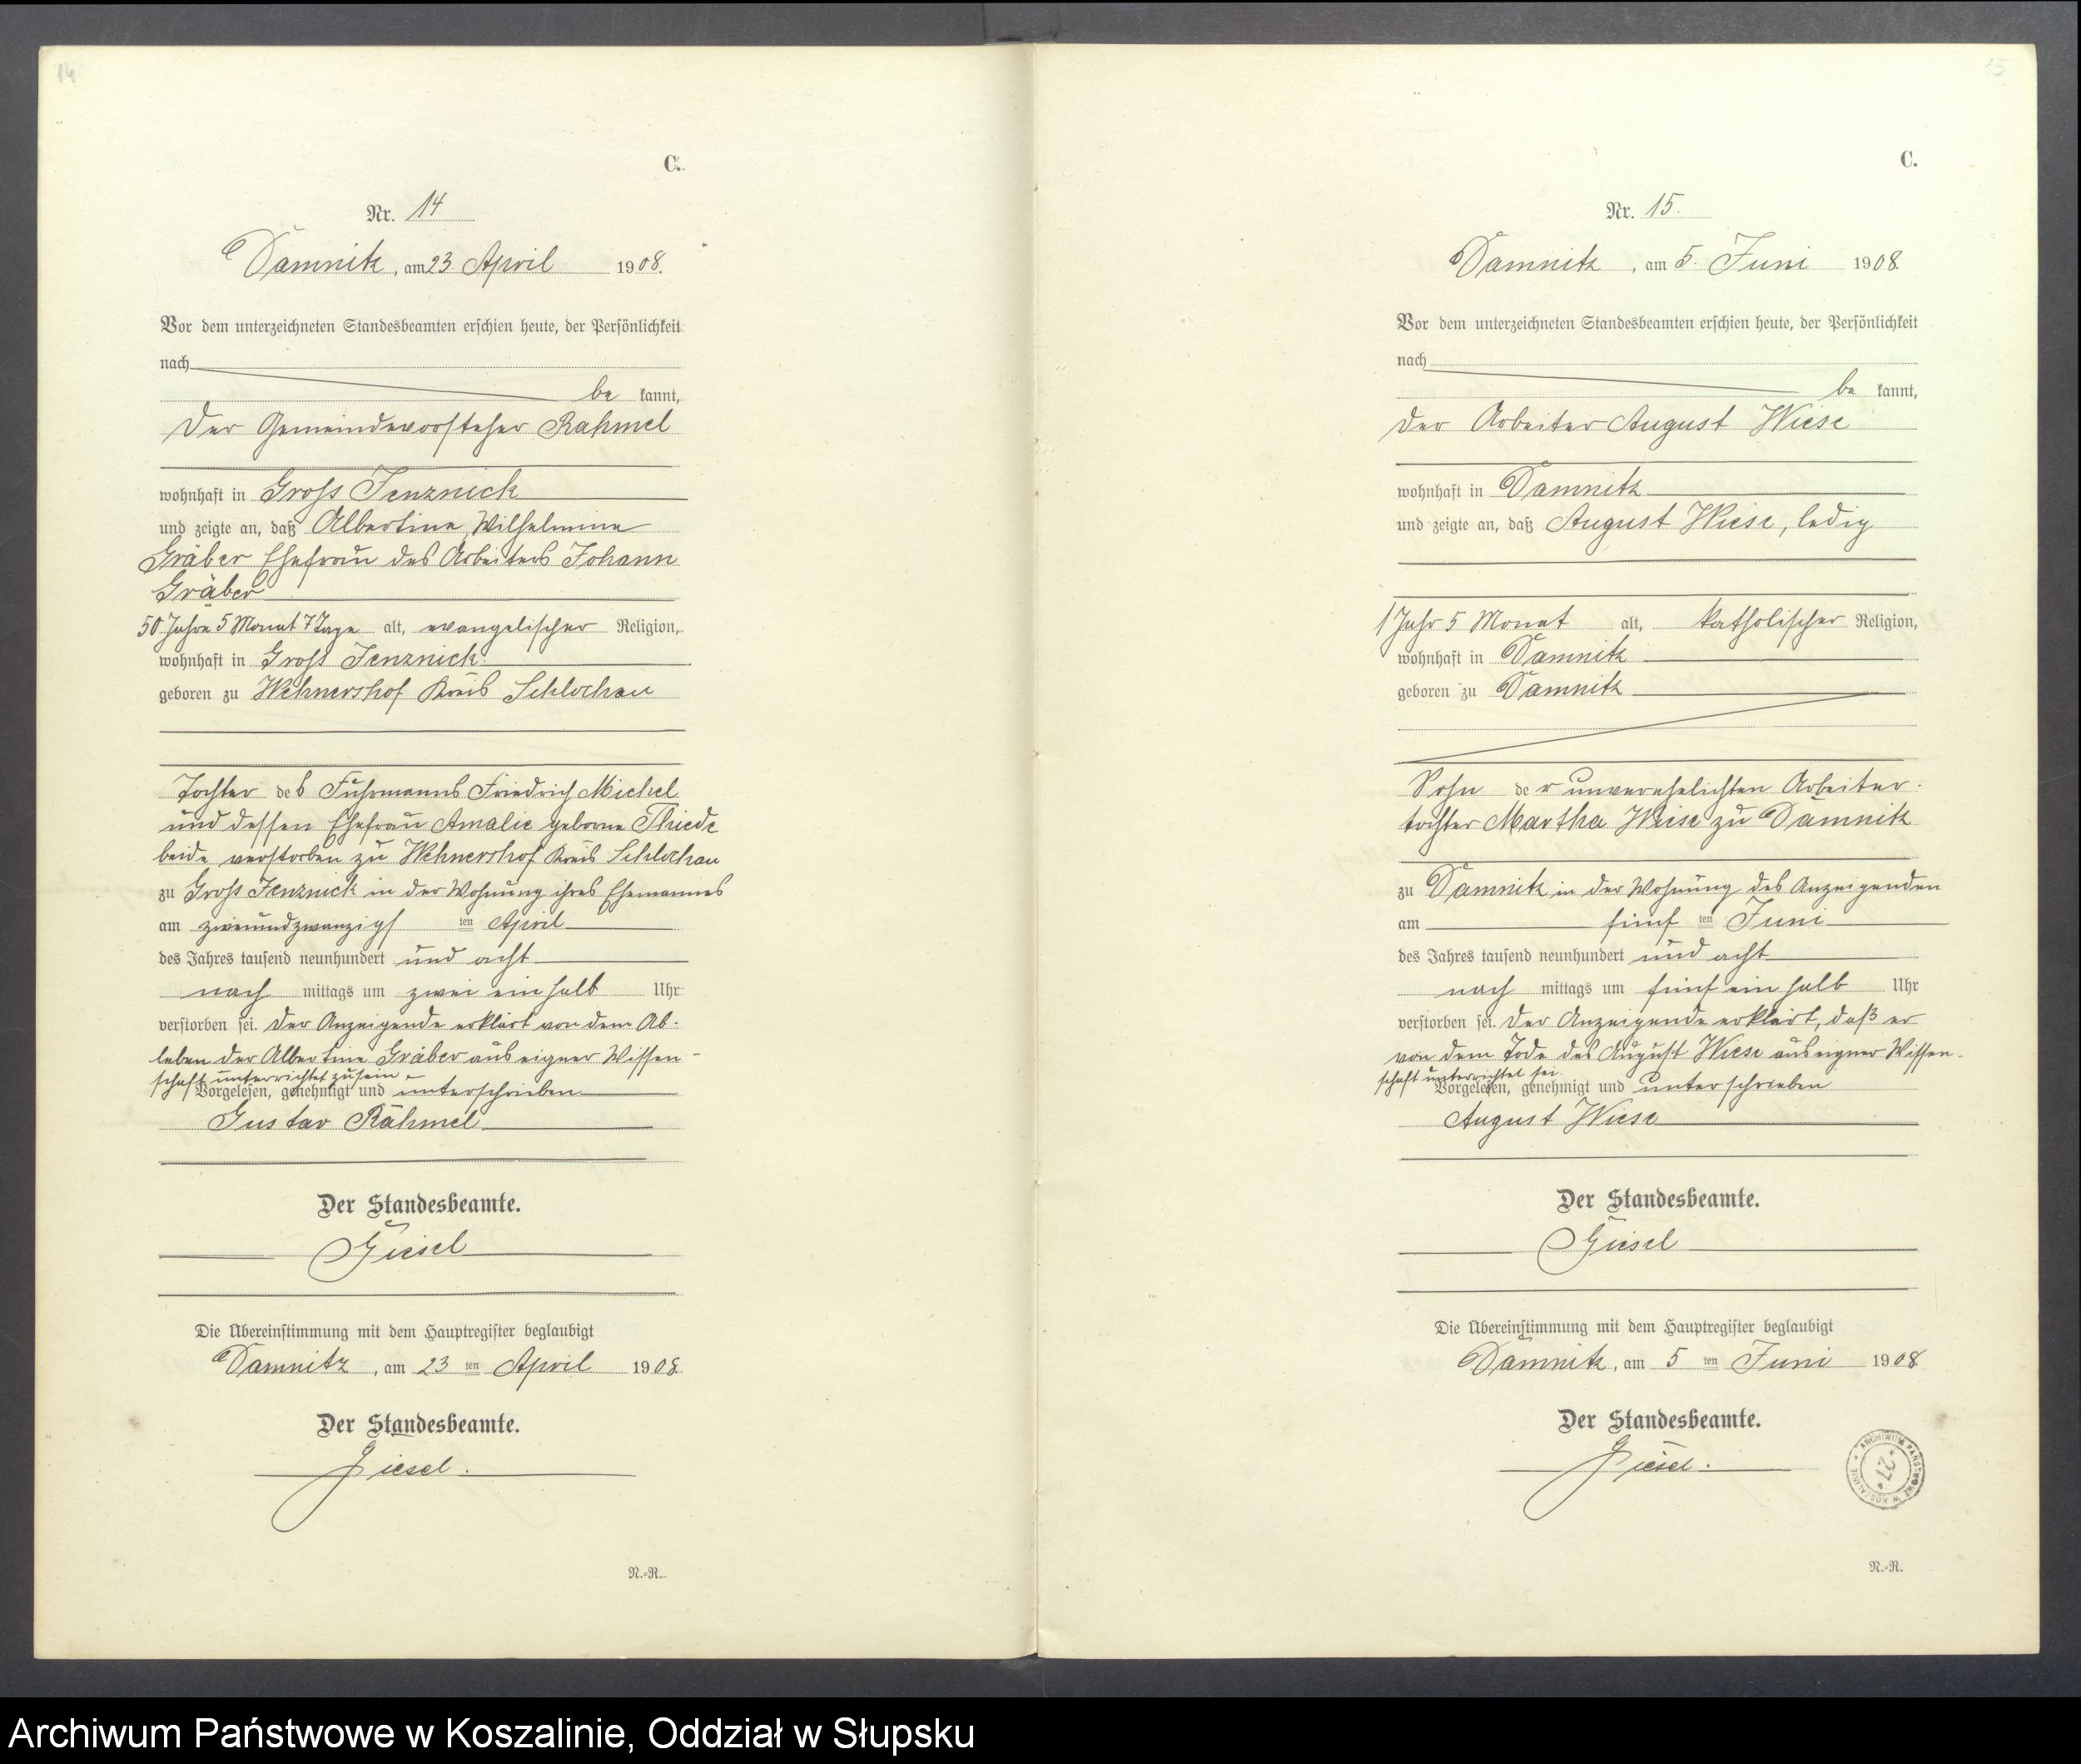 14
C.
Nr. 14
Damnitz, am 23 April 1908.
Vor dem unterzeichneten Standesbeamten erschien heute, der Persönlichkeit
nach
be kannt,
der Gemeindevorsteher Rahmel
wohnhaft in Gross Jenznick
und zeigte an, daß Albertine Wilhelmine
Gräber Ehefrau des Arbeiters Johann
Gräber
50 Jahre 5 Monat 7 Tage alt, evangelischer Religion,
wohnhaft in Gross Jenznick
geboren zu Wehnershof Kreis Schlochau
Tochter des Fuhrmanns Friedrich Michel
und dessen Ehefrau Amalie geborne Thiede
beide verstorben zu Wehnershof Kreis Schlochau
zu Gross Jenznick in der Wohnung ihres Ehemannes
am zweiundzwanzigs ten April
des Jahres tausend neunhundert und acht
nach mittags um zwei ein halb Uhr
verstorben sei. Der Anzeigende erklärt von dem Ab-
leben der Albertine Gräber aus eigner Wissen-
schaft unterrichtet zu sein.
Vorgelesen, genehmigt und unterschrieben
Gustav Rahmel
Der Standesbeamte.
Giesel
Die Übereinstimmung mit dem Hauptregister beglaubigt
Damnitz, am 23 ten April 1908
Der Standesbeamte.
Giesel.
N.=R.
15
C.
Nr. 15.
Damnitz, am 5. Juni 1908.
Vor dem unterzeichneten Standesbeamten erschien heute, der Persönlichkeit
nach
be kannt,
der Arbeiter August Wiese
wohnhaft in Damnitz
und zeigte an, daß August Wiese, ledig
1 Jahr 5 Monat alt, katholischer Religion,
wohnhaft in Damnitz
geboren zu Damnitz
Sohn der unverehelichten Arbeiter-
tochter Martha Wiese zu Damnitz
zu Damnitz in der Wohnung des Anzeigenden
am fünf ten Juni
des Jahres tausend neunhundert und acht
nach mittags um fünf ein halb Uhr
verstorben sei. Der Anzeigende erklärt, daß er
von dem Tode des August Wiese aus eigner Wissen-
schaft unterrichtet sei
Vorgelesen, genehmigt und unterschrieben
August Wiese
Der Standesbeamte.
Giesel
Die Übereinstimmung mit dem Hauptregister beglaubigt
Damnitz, am 5 ten Juni 1908
Der Standesbeamte.
Giesel.
ARCHIWUM PAŃSTWOWE W KOSZALINIE
* 27 *
N.=R.
Archiwum Państwowe w Koszalinie, Oddział w Słupsku